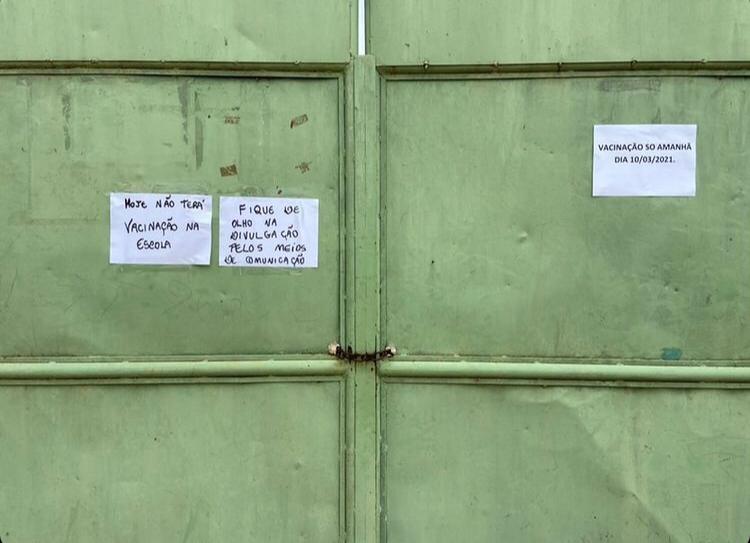 HOJE NÃO TERÁ
VACINAÇÃO NA
ESCOLA
FIQUE DE
OLHO NA
DIVULGAÇÃO
PELOS MEIOS
DE COMUNICAÇÃO
VACINAÇÃO SO AMANHÃ
DIA 10/03/2021.